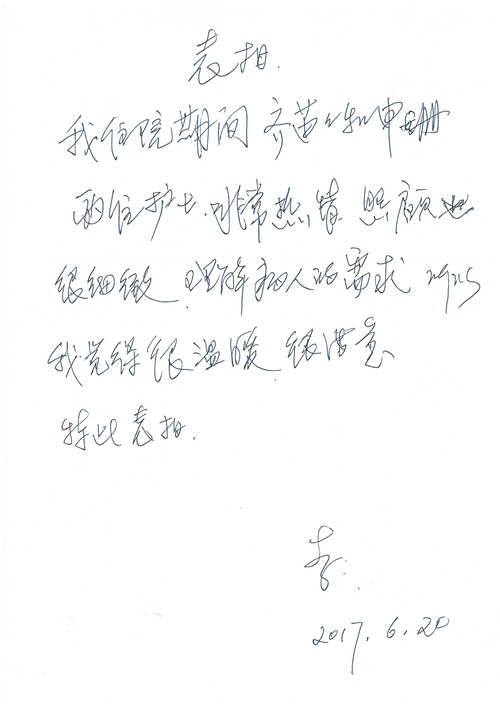 表扬.
我住院期间 齐苗和申珊
两位护士,非常热情 照顾也
很细致,理解病人的需求 所以
我觉得很温暖 很满意
特此表扬.
李
2017.6.20